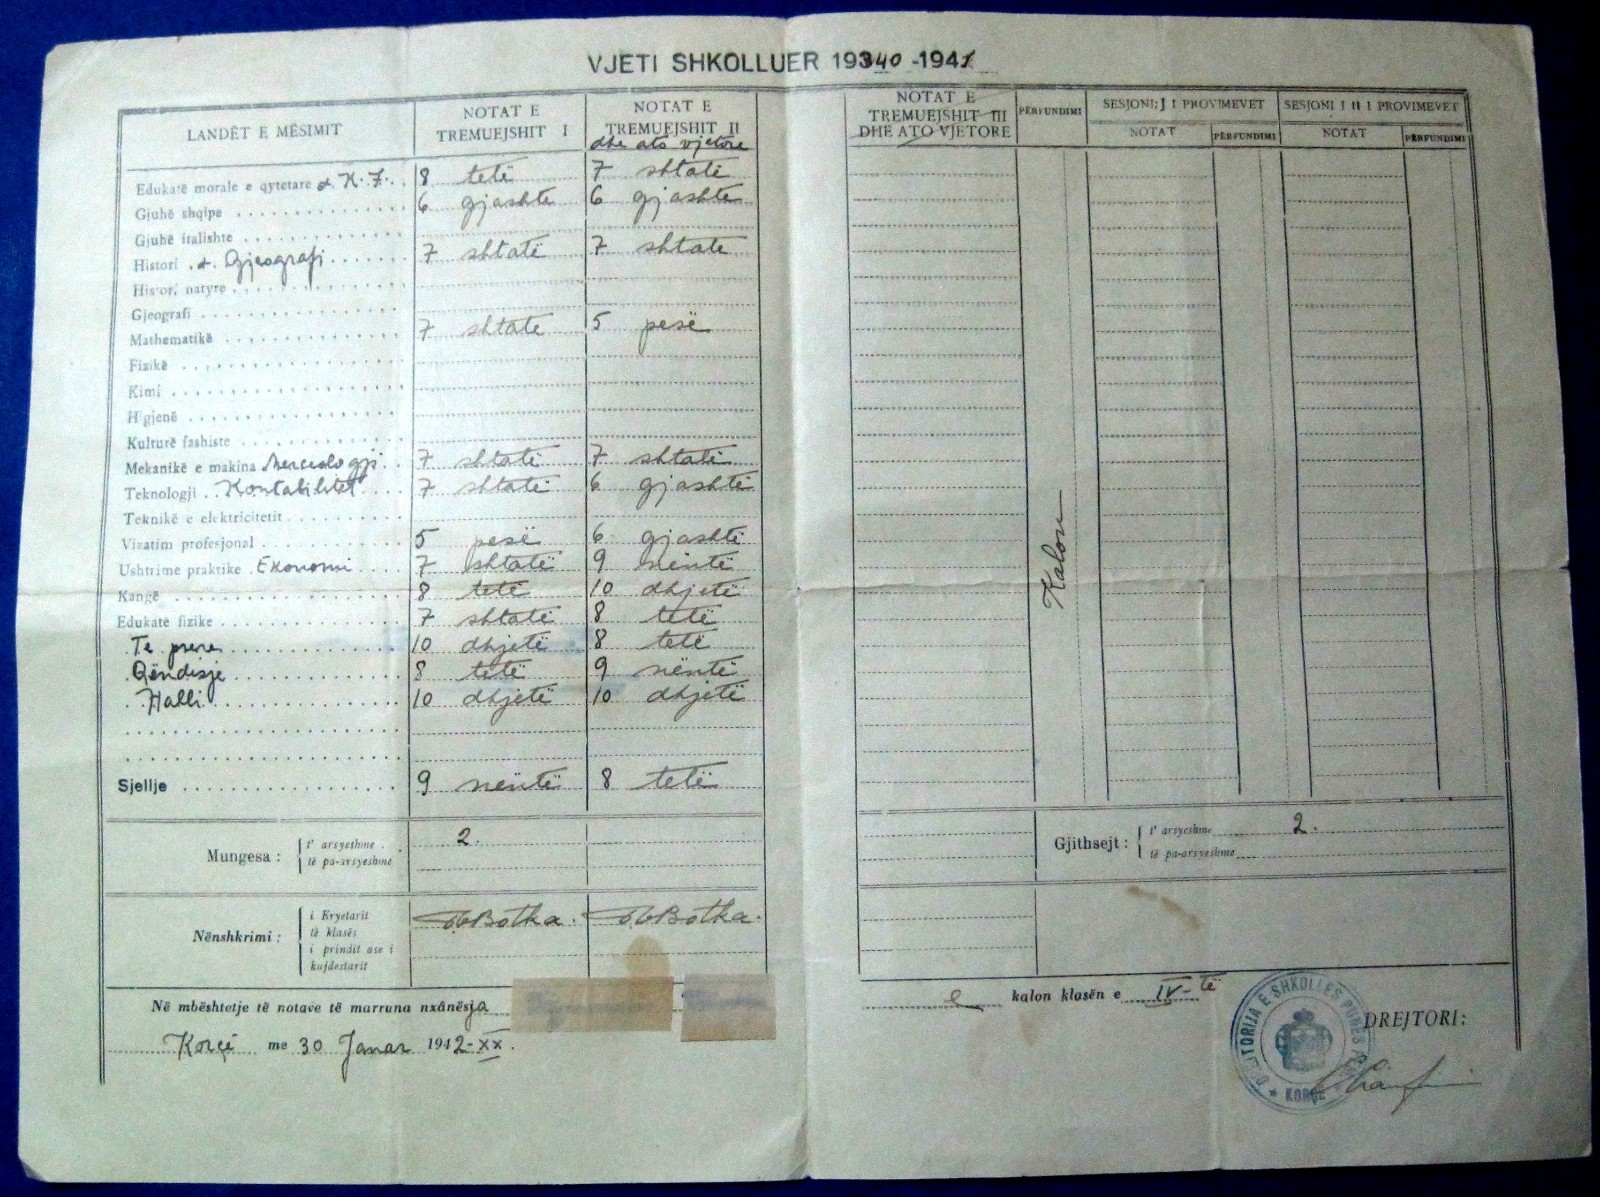 VJETI SHKOLLUER 19340 -1941
LANDËT E MËSIMIT
NOTAT E TREMUEJSHIT I
NOTAT E TREMUEJSHIT II
dhe ato vjetore
NOTAT E TREMUEJSHIT III DHE ATO VJETORE
PËRFUNDIMI
SESJONI I I PROVIMEVET
NOTAT
PËRFUNDIMI
SESJONI I II I PROVIMEVET
NOTAT
PËRFUNDIMI
Edukatë morale e qytetare & K. F. 8 tetë 7 shtatë
Gjuhë shqipe 6 gjashtë 6 gjashtë
Gjuhë italishte
Histori & Gjeografi 7 shtatë 7 shtatë
Histori natyre
Gjeografi
Mathematikë 7 shtatë 5 pesë
Fizikë
Kimi
Higjenë
Kulturë fashiste
Mekanikë e makina Merceologji 7 shtatë 7 shtatë
Teknologji Kontabilitet 7 shtatë 6 gjashtë
Teknikë e elektricitetit
Vizatim profesjonal 5 pesë 6 gjashtë
Ushtrime praktike Ekonomi 7 shtatë 9 nëntë
Kangë 8 tetë 10 dhjetë
Edukatë fizike 7 shtatë 8 tetë
Të prere 10 dhjetë 8 tetë
Qëndisje 8 tetë 9 nëntë
Halli 10 dhjetë 10 dhjetë
Kalon
Sjellje 9 nëntë 8 tetë
Mungesa : t' arsyeshme 2.
të pa-arsyeshme
Gjithsejt : t' arsyeshme 2.
të pa-arsyeshme
Nënshkrimi : i Kryetarit të klasës Botka. Botka.
i prindit ase i kujdestarit
Në mbështetje të notave të marruna nxânësja
e kalon klasën e IV-të
Korçë me 30 Janar 1942-XX.
DREJTORI:
DREJTORIJA E SHKOLLËS PUNËS
KORÇË